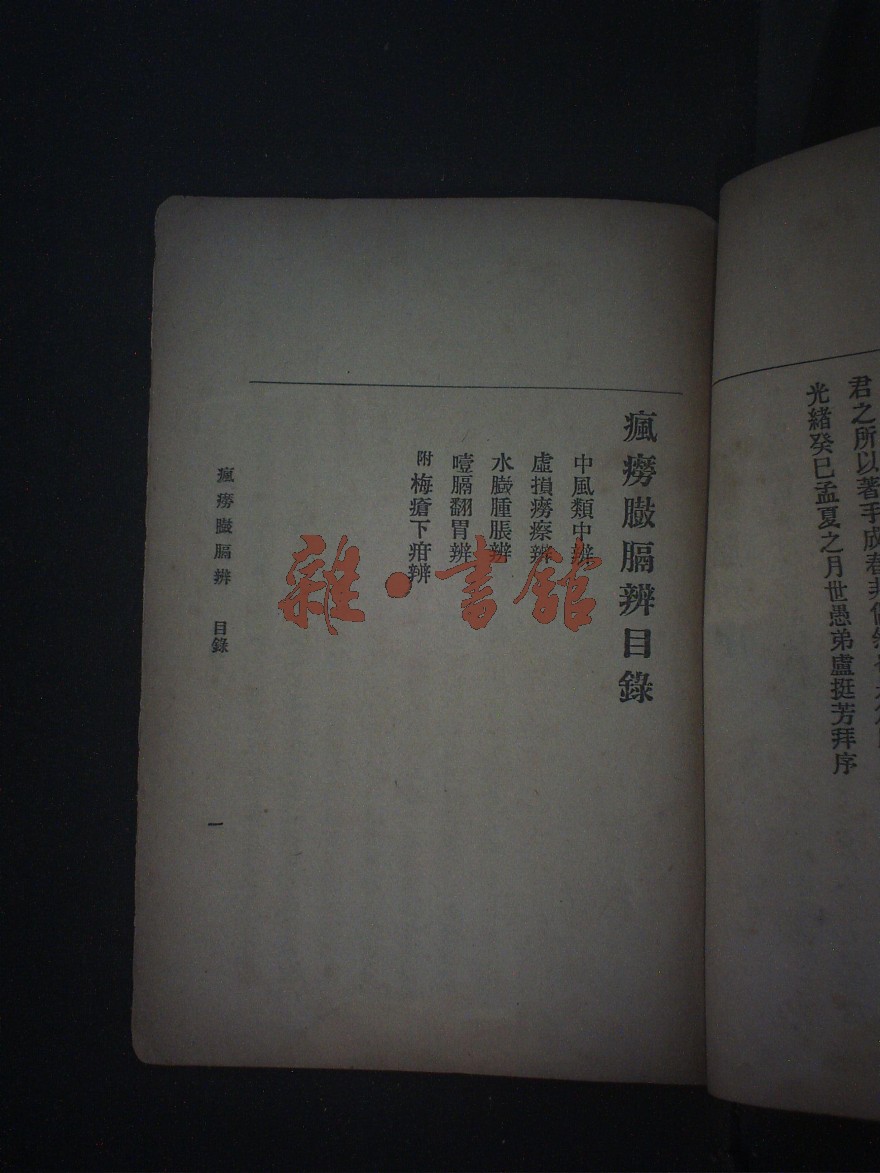 君之所以著手成春非
光緒癸巳孟夏之月世愚弟盧挺芳拜序
瘋癆臌膈辨目錄
中風類中辨
虛損癆瘵辨
水臌腫脹辨
噎膈翻胃辨
附梅瘡下疳辨
瘋癆臌膈辨 目錄
一
雜·書館